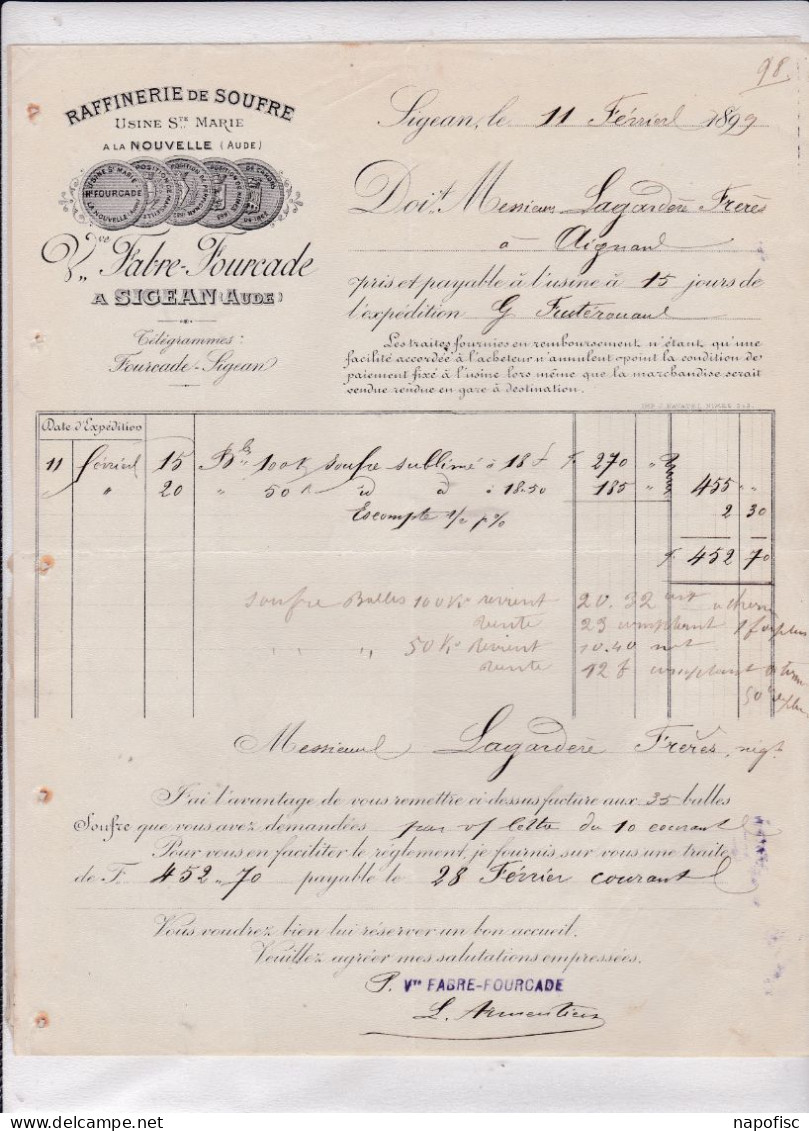 98
RAFFINERIE DE SOUFRE
USINE STE MARIE
A LA NOUVELLE (AUDE)
USINE STE MARIE
HI FOURCADE
LA NOUVELLE
Vve Fabre-Fourcade
A SIGEAN (AUDE)
Télégrammes:
Fourcade-Sigean
Sigean, le 11 Février 1899
Doivt Messieurs Lagardère Frères
à Aignan
pris et payable à l'usine à 15 jours de
l'expédition G Fustérouau
Les traites fournies en remboursement, n'étant, qu'une
facilité accordée à l'acheteur n'annulent point la condition de
paiement fixé à l'usine lors même que la marchandise serait
vendue rendue en gare à destination.
Date d'Expédition
11 février 15 Bles 100 K soufre sublimé à 18 f f. 270 "
" 20 " 50 K id d à 18.50 185 " 455 "
Escompte 1/2 p% 2 30
f. 452 70
soufre Balles 100 Ks revient 20.32 net
vente 23 comptant 1 f
" " 50 Ks revient 10.40 net
vente 12 f comptant
50
Messieurs Lagardère Frères, négt
J'ai l'avantage de vous remettre ci-dessus facture aux 35 balles
Soufre que vous avez demandées par v/ lettre du 10 courant
Pour vous en faciliter le règlement, je fournis sur vous une traite
de F. 452,,70 payable le 28 Février courant
Vous voudrez bien lui réserver un bon accueil.
Veuillez agréer mes salutations empressées.
P. Vve FABRE-FOURCADE
napofisc